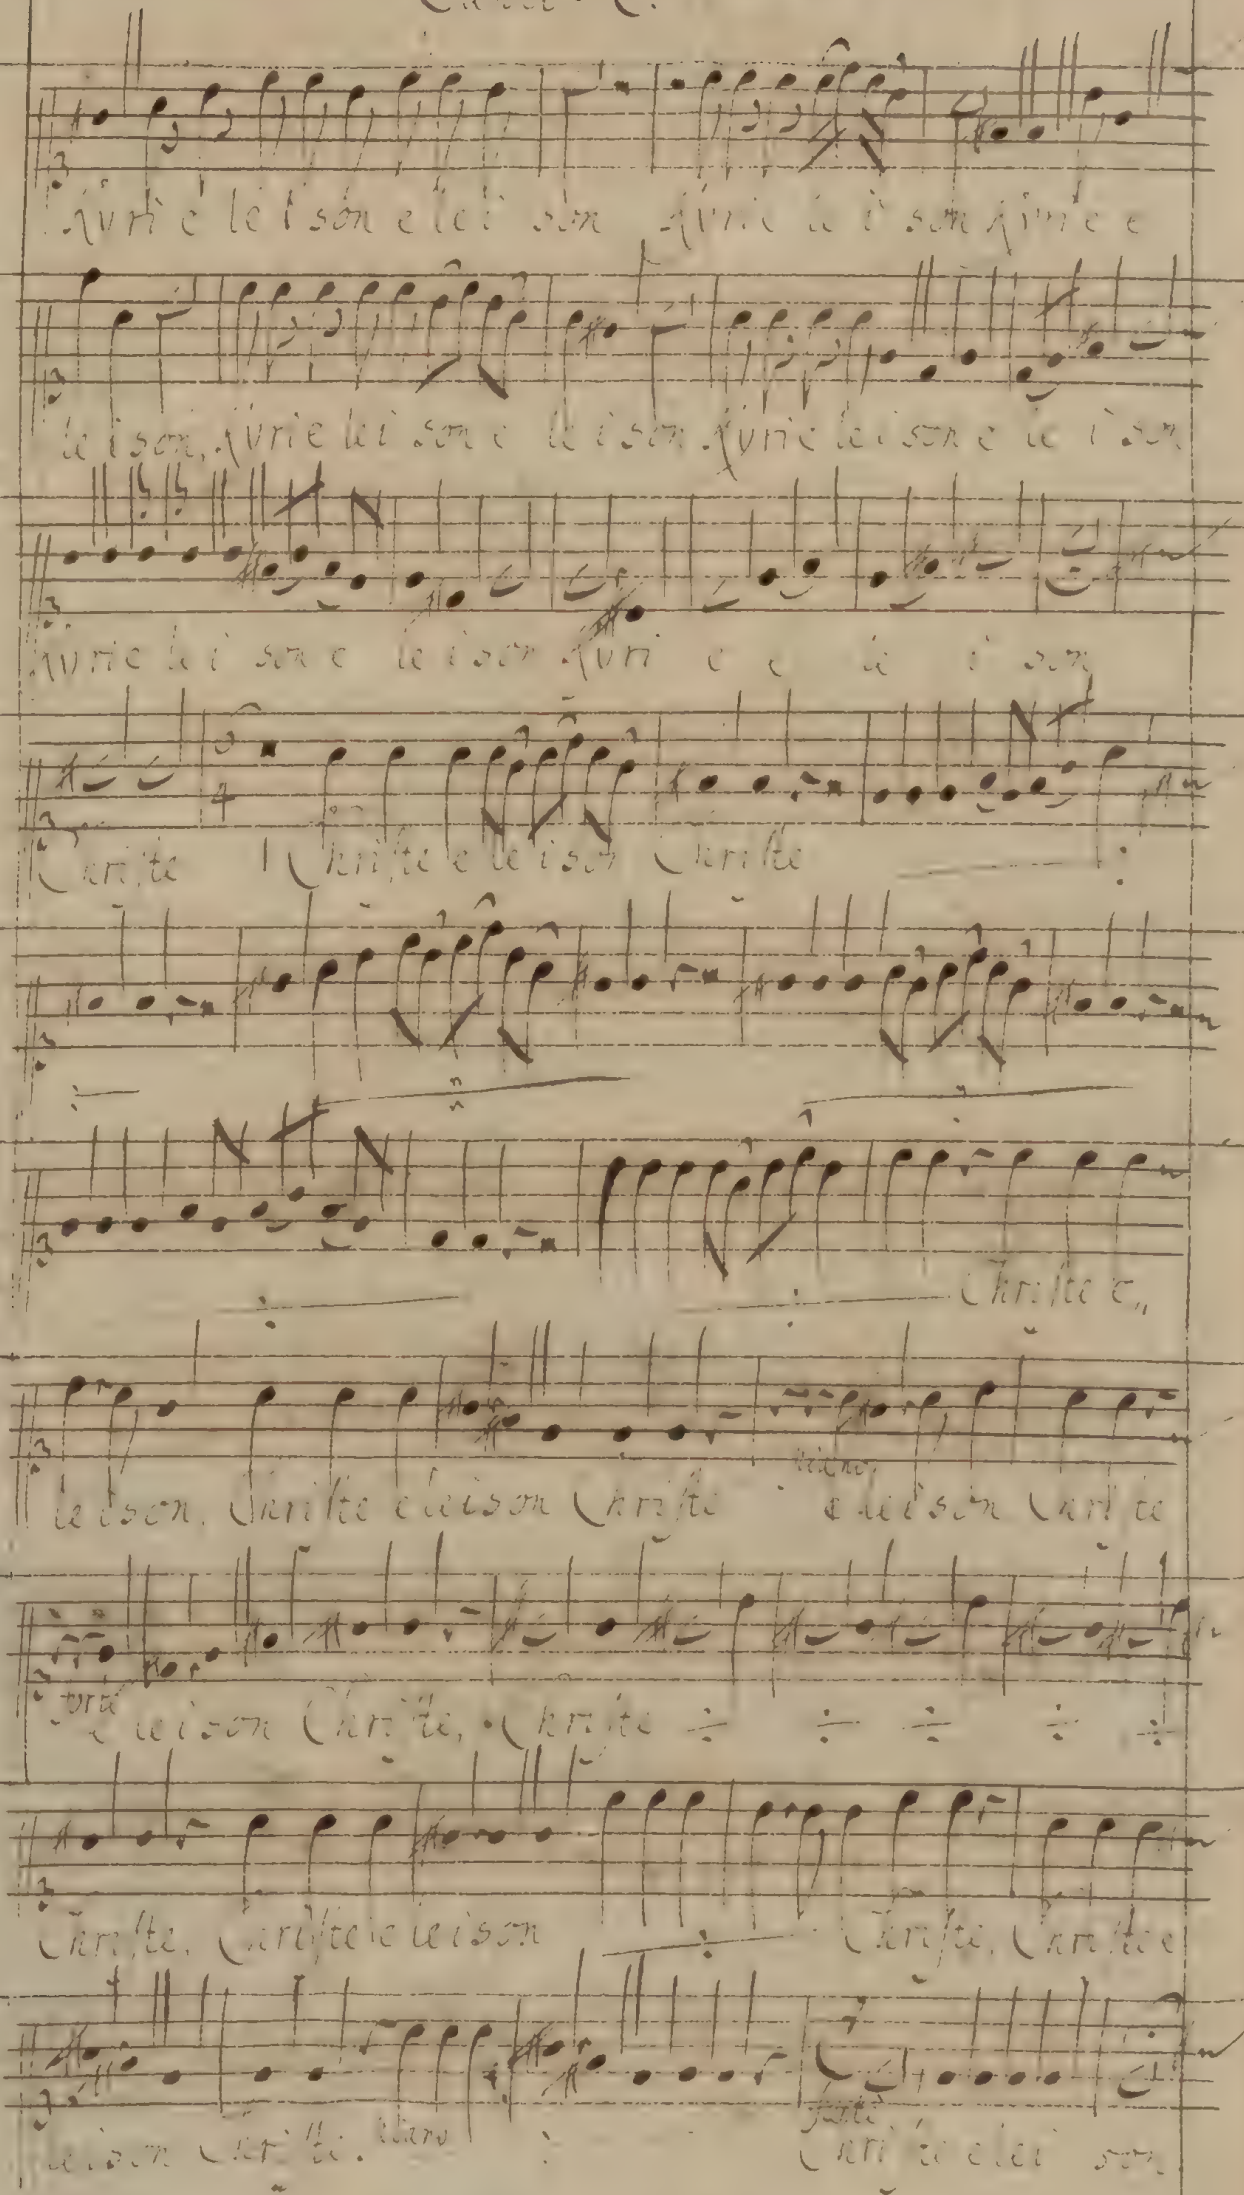 Kyrie leison e lei son Kyrie le i son Kyrie e
le ison, Kyrie lei son e le ison Kyrie lei son e le i son
Kyrie le i son e le ison Kyri e e le i son
Christe Christe e le ison Christe
Christe e
leison. Christe eleison Christe piano. eleison Christe
forte e leison Christe, Christe
Christe, Christe eleison Christe, Christe e
leison Christe. piano forte Christe elei son.